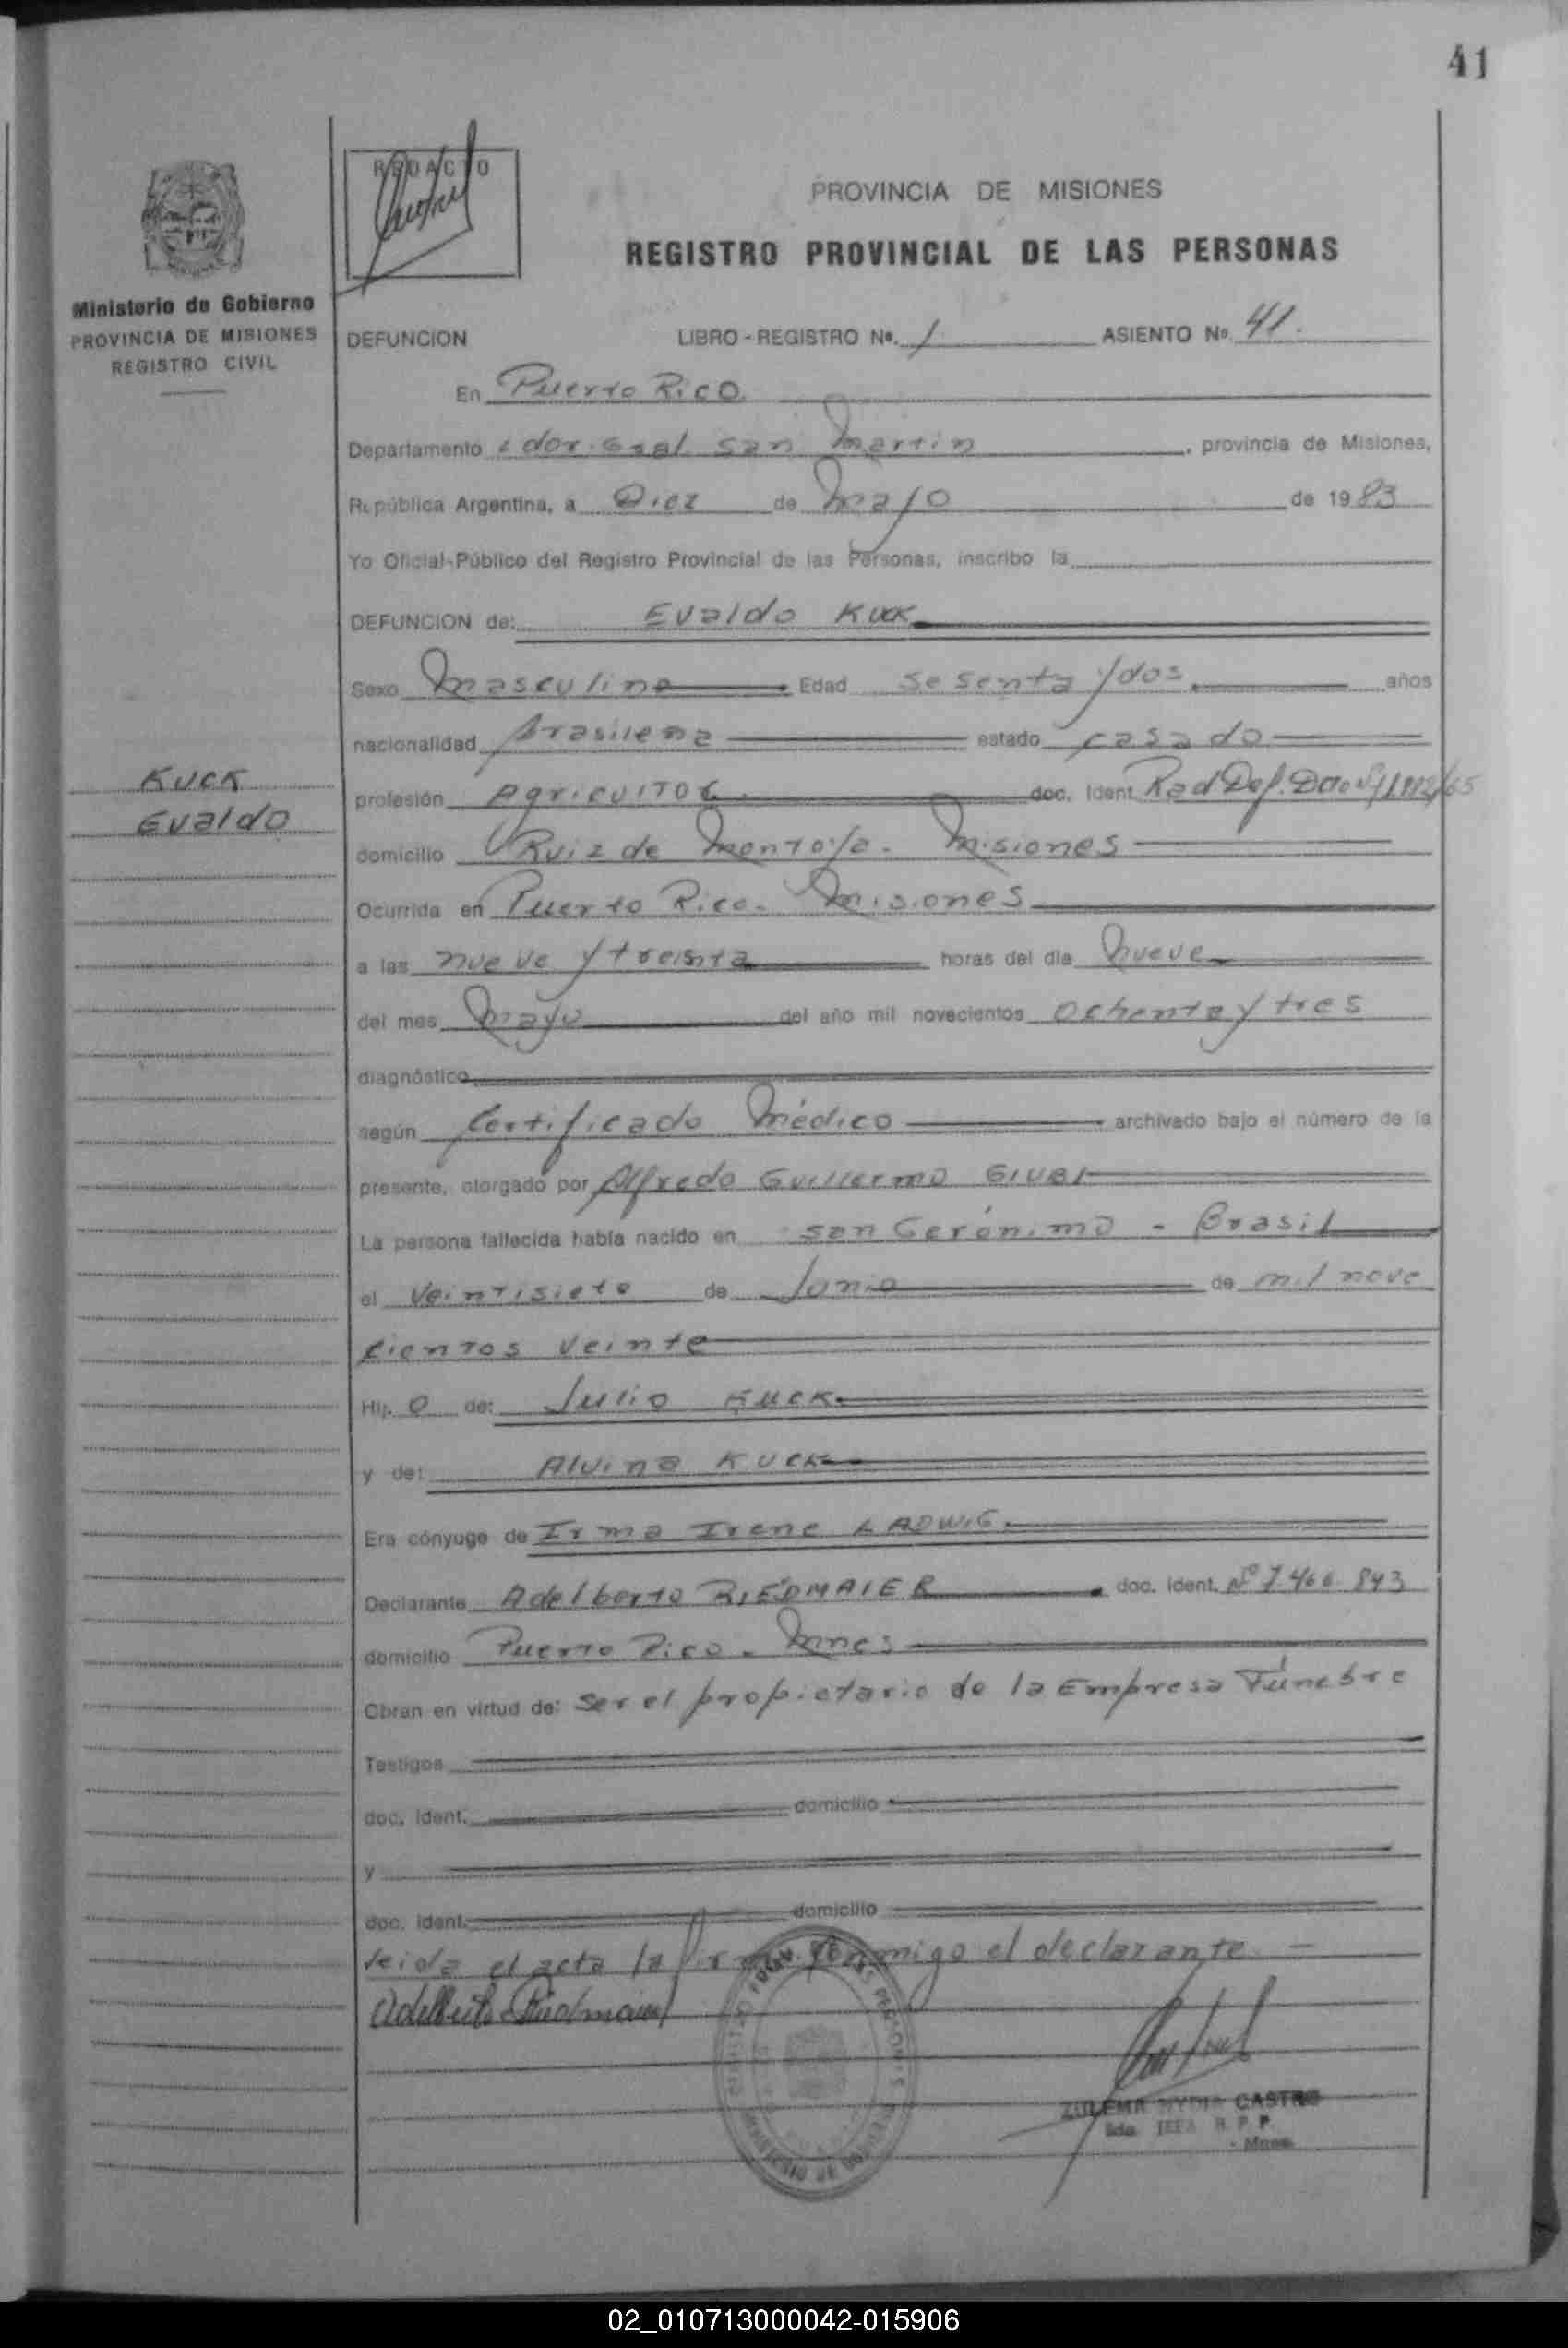 41
REDACTO
PROVINCIA DE MISIONES
REGISTRO PROVINCIAL DE LAS PERSONAS
Ministerio de Gobierno
PROVINCIA DE MISIONES
REGISTRO CIVIL
DEFUNCION LIBRO - REGISTRO Nº. 1 ASIENTO Nº. 41.
En Puerto Rico.
Departamento Ldor. Gral. San Martin, provincia de Misiones,
República Argentina, a Diez de Mayo de 1983
Yo Oficial-Público del Registro Provincial de las Personas, inscribo la
DEFUNCION de: Evaldo KUCK
Sexo Masculino Edad sesenta y dos años
nacionalidad brasilena estado casado
KUCK
Evaldo
profesión Agricultor. doc. Ident. Rad Def.
domicilio Ruiz de Montoya - Misiones
Ocurrida en Puerto Rico - Misiones
a las nueve y treinta horas del día nueve
del mes Mayo del año mil novecientos ochenta y tres
diagnóstico
según Certificado Médico archivado bajo el número de la
presente, otorgado por Alfredo Guillermo GIUBI
La persona fallecida había nacido en San Gerónimo - Brasil
el veintisiete de Junio de mil nove
cientos veinte
Hij o de: Julio KUCK
y de: Alvina KUCK
Era cónyuge de Irma Irene LADWIG.
Declarante Adelberto RIEDMAIER doc. Ident. Nº 7.466.843
domicilio Puerto Rico - Mnes
Obran en virtud de: Ser el propietario de la Empresa Fúnebre
Testigos
doc. Ident. domicilio
y
doc. Ident. domicilio
leida el acta la firma conmigo el declarante
Adelberto Riedmaier
ZULEMA NYDIA CASTRO
JEFA R. P. P.
Mnes.
02_010713000042-015906